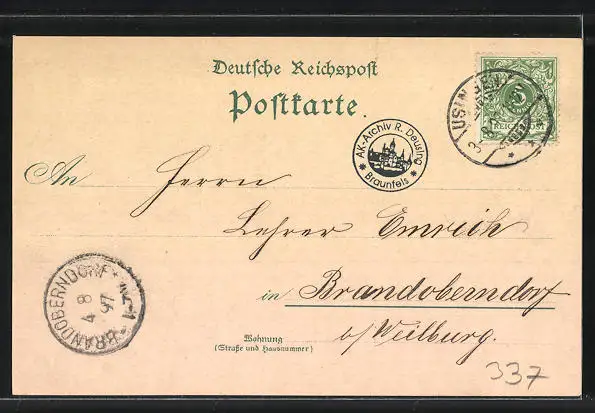 Deutsche Reichspost
Postkarte.
AK-Archiv R. Deusing
* Braunfels *
USINGEN
3
5
REICHSPOST
An Herrn
Lehrer Emrich
in Brandoberndorf
b/ Weilburg.
BRANDOBERNDORF
4 8
97
Wohnung
(Straße und Hausnummer)
337